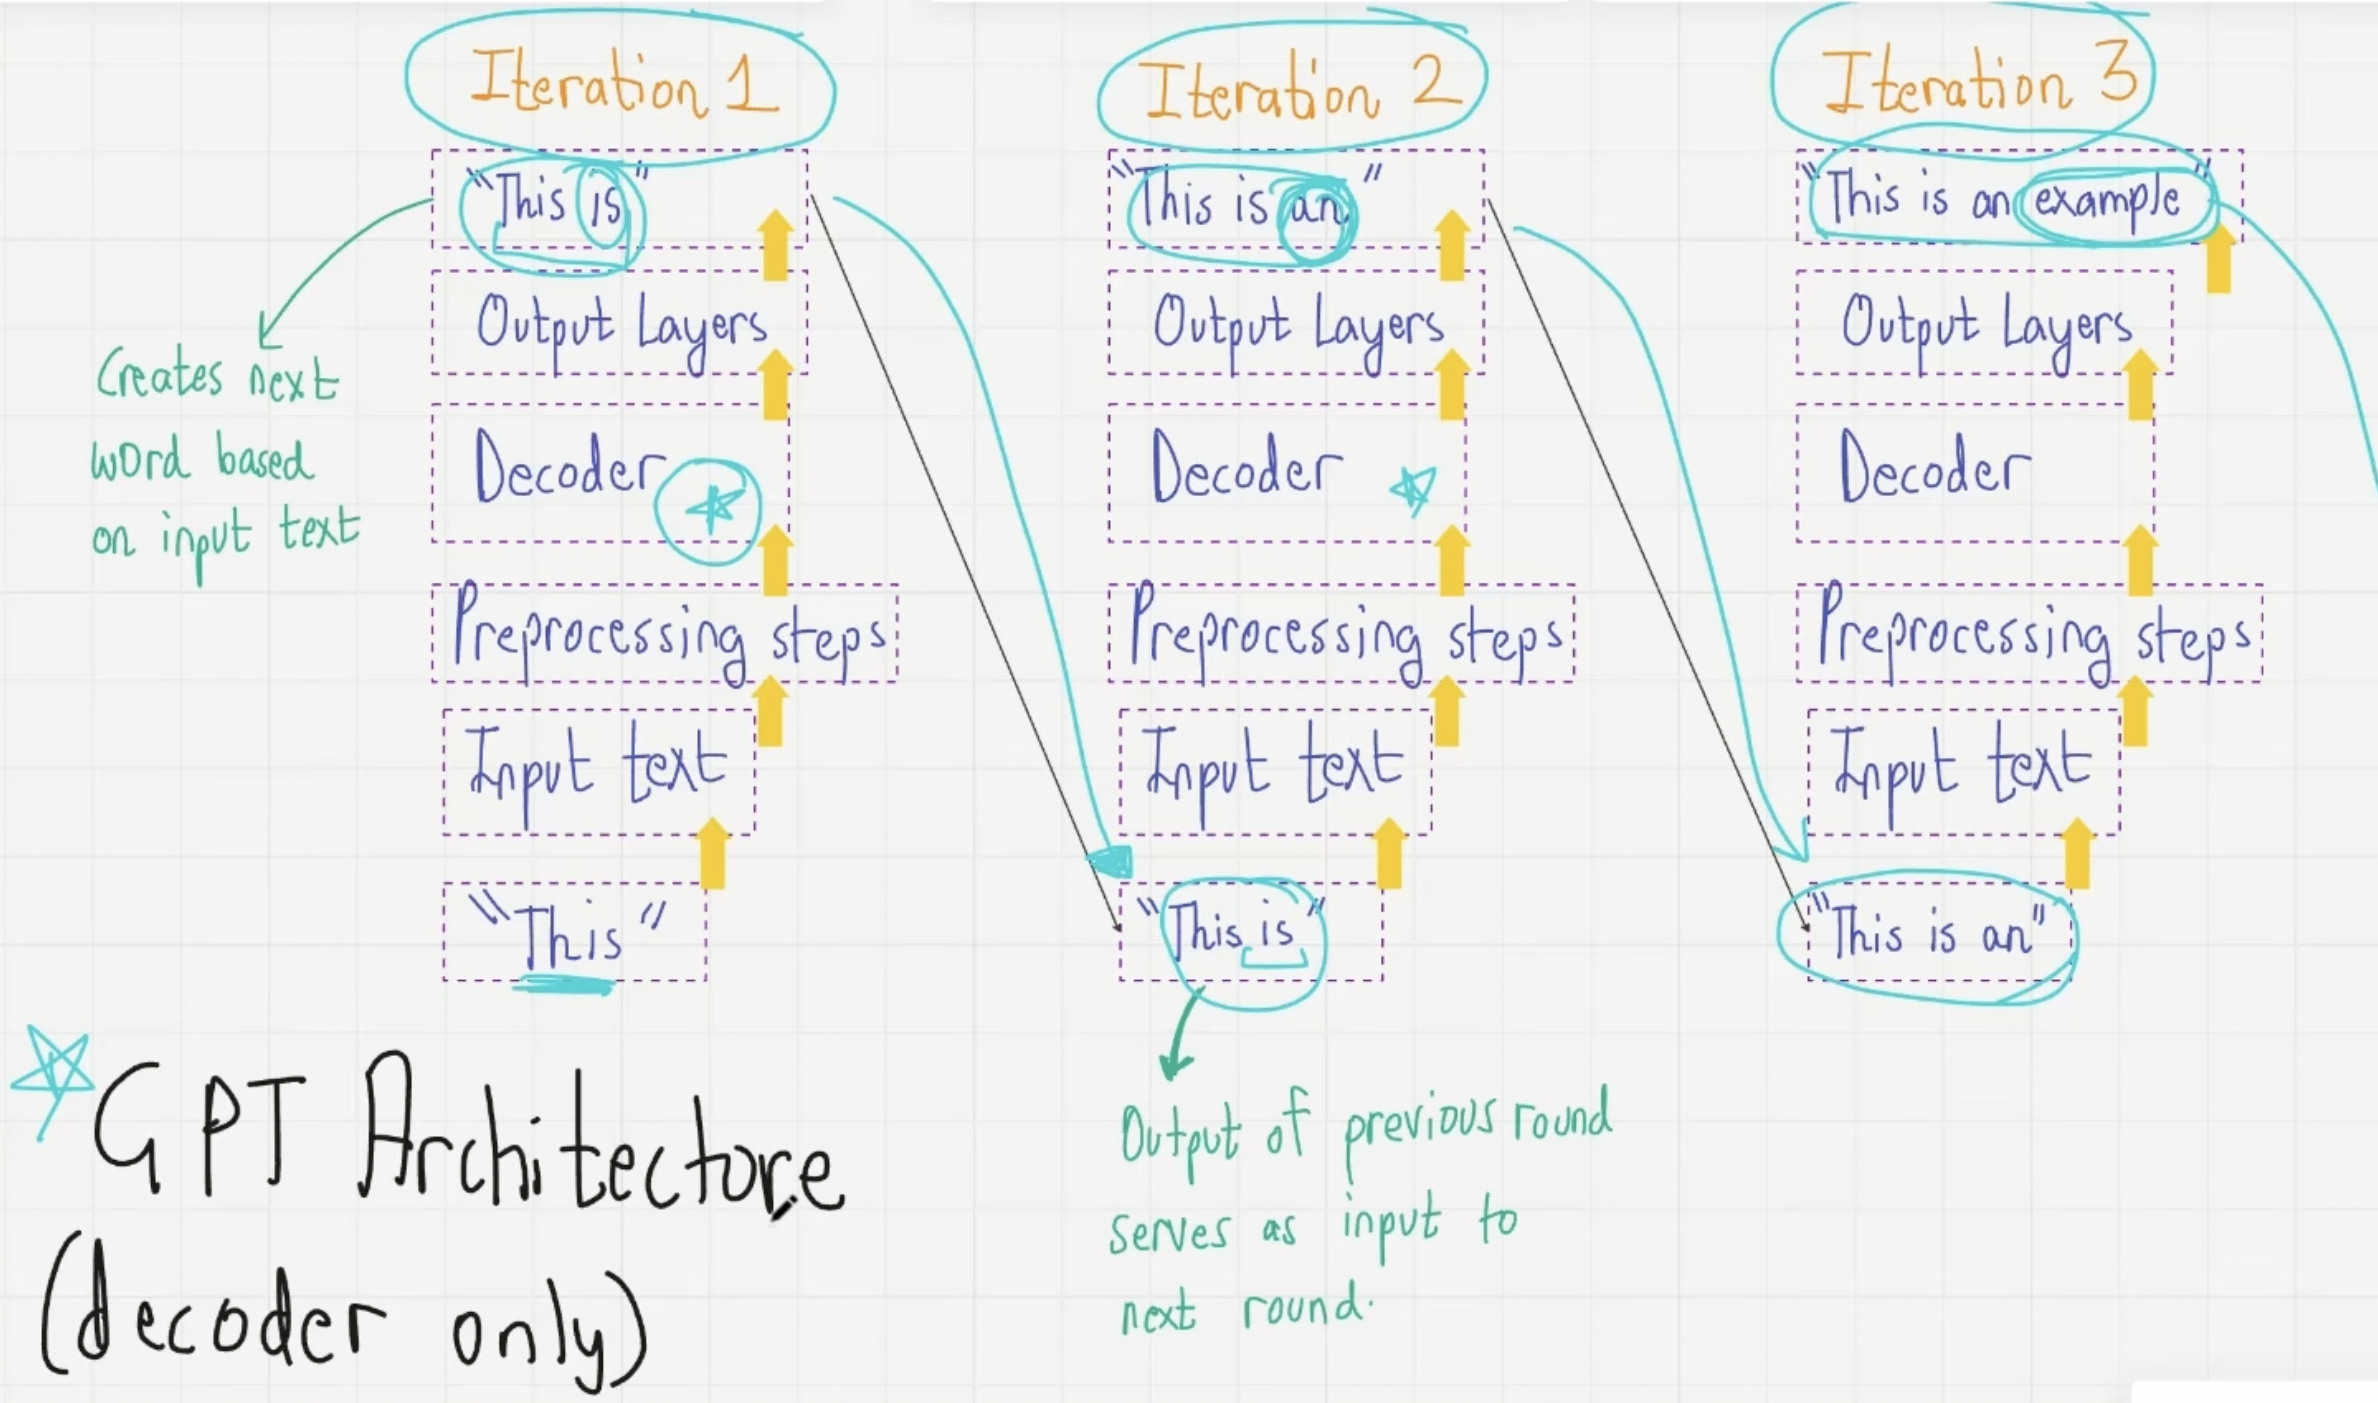 Iteration 1
"This is"
Output Layers
Decoder
Preprocessing steps
Input text
"This"
Creates next
word based
on input text
Iteration 2
"This is an"
Output Layers
Decoder
Preprocessing steps
Input text
"This is"
Output of previous round
serves as input to
next round.
Iteration 3
"This is an example"
Output Layers
Decoder
Preprocessing steps
Input text
"This is an"
GPT Architecture
(decoder only)